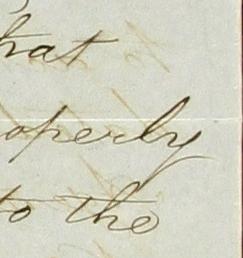 hat
operly
to the